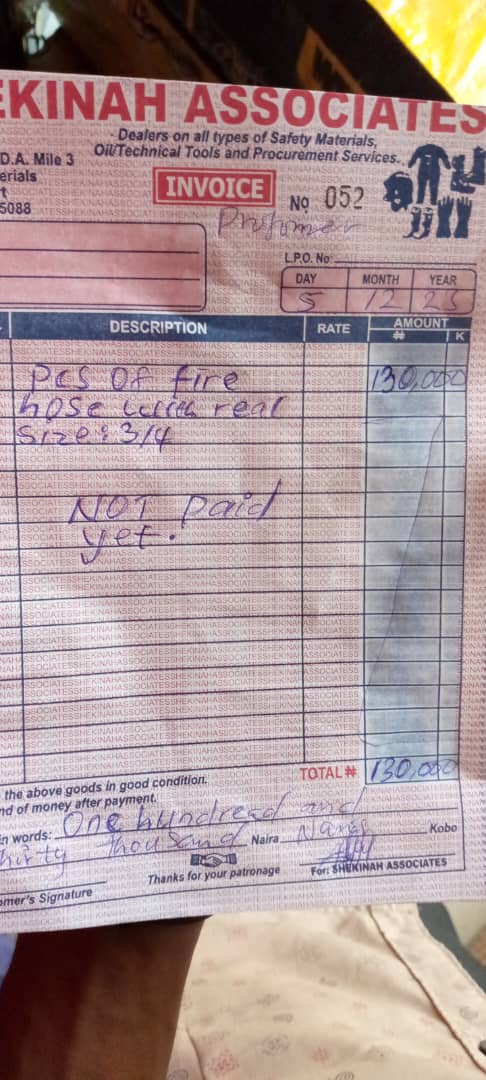 EKINAH ASSOCIATES
Dealers on all types of Safety Materials,
Oil/Technical Tools and Procurement Services.
D.A. Mile 3
erials
t
5088
INVOICE
No 052
L.P.O. No:
DAY MONTH YEAR
5 12 25
DESCRIPTION RATE AMOUNT
₦ K
Pcs OF fire 130,000
hose with real
Size: 3/4
NOT paid
yet.
TOTAL ₦ 130,000
the above goods in good condition.
nd of money after payment.
n words: One hundread and
hirty thousand Naira Kobo
Thanks for your patronage
For: SHEKINAH ASSOCIATES
omer's Signature